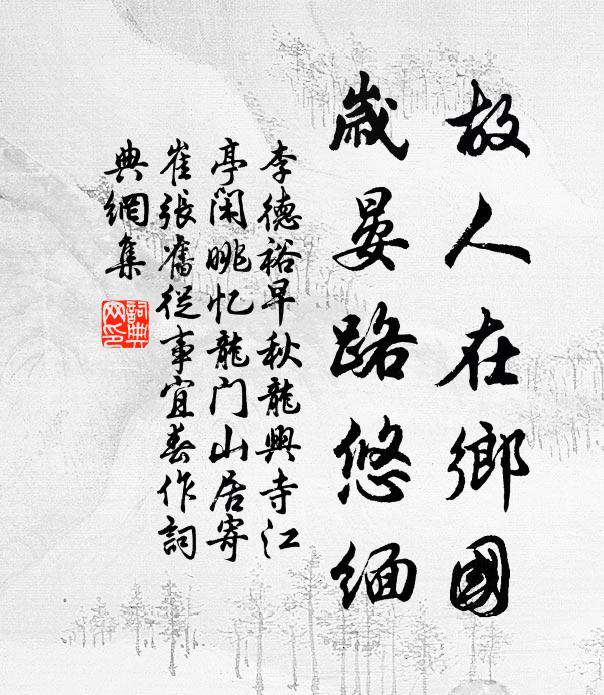 故人在鄉國
歲晏路悠緬
李德裕早秋龍興寺江
亭閑眺忆龍门山居寄
崔張舊從事宜春作詞
典網集
詞典
网印